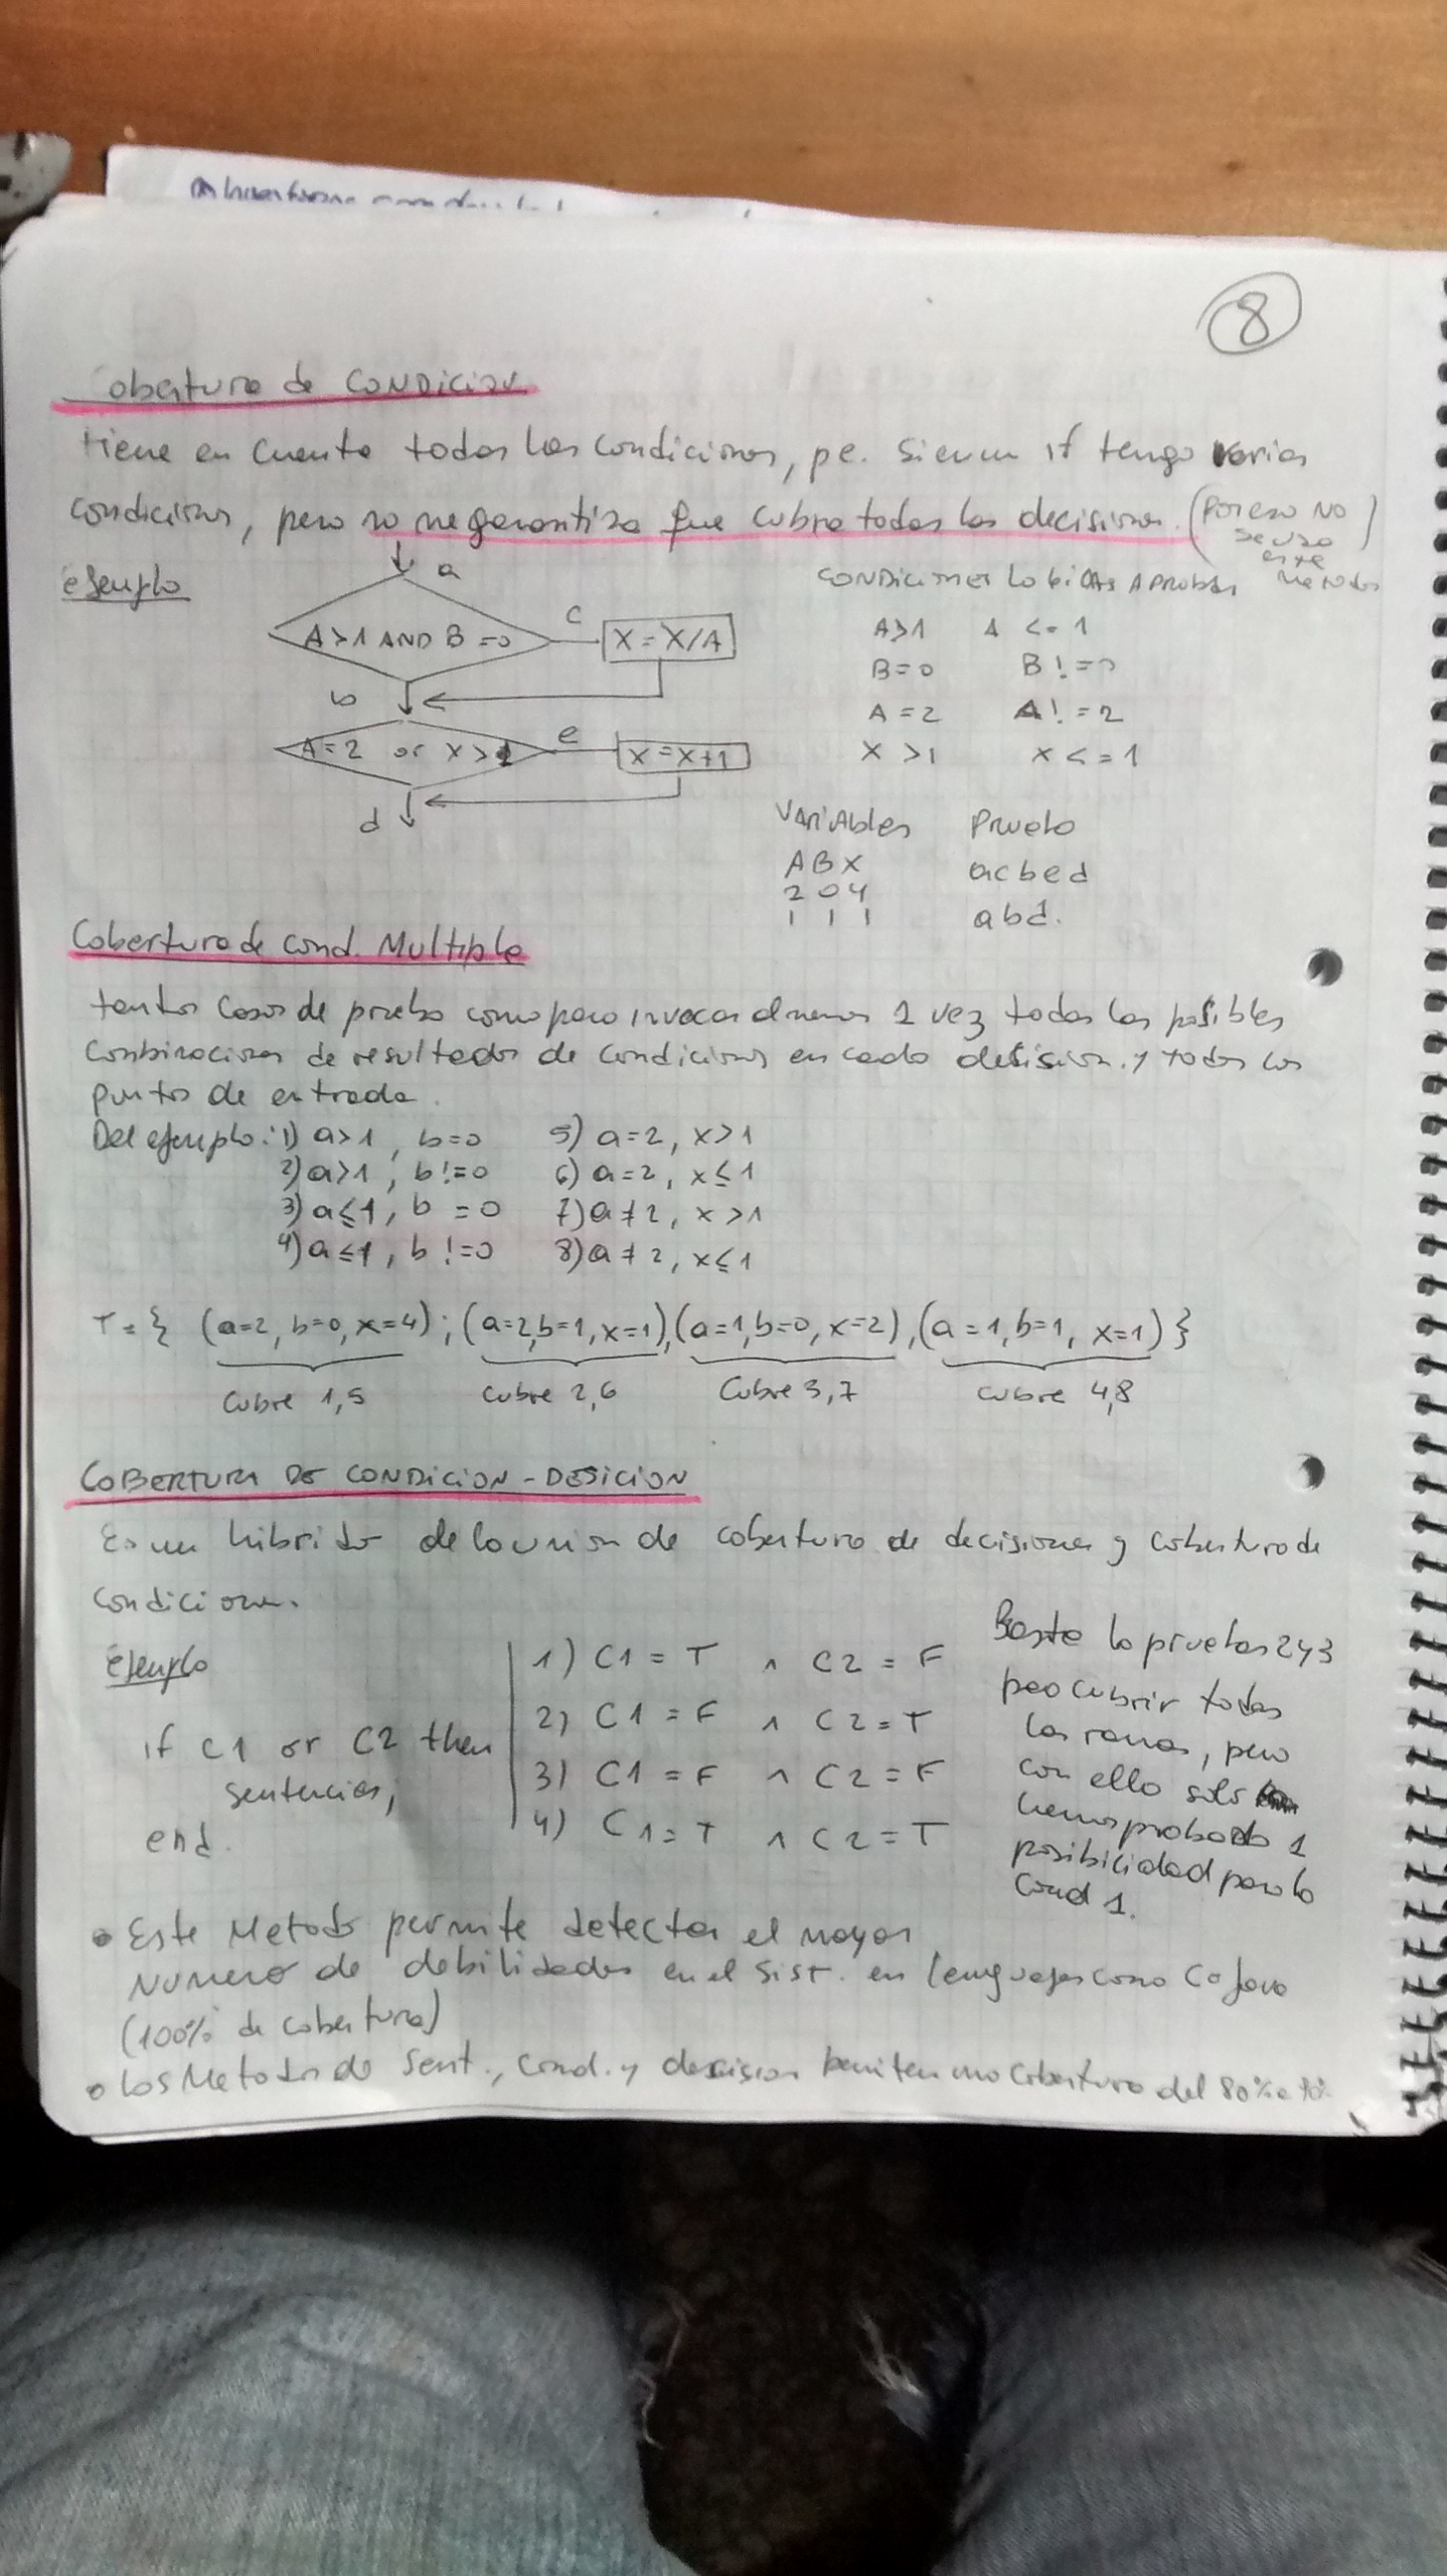 8
Cobertura de CONDICION
tiene en cuenta todas las condiciones, pe. si en un if tengo varias
condiciones, pero no me garantiza que cubra todas las decisiones. (POR ESO NO
se usa
este
metodo)
ejemplo
CONDICIONES LOGICAS A PROBAR
a
A>1 AND B=0
c
X = X/A
b
A=2 or X>1
e
X=X+1
d
A>1 A <= 1
B=0 B != 0
A=2 A! = 2
X >1 X <= 1
VARIAbles Prueba
A B X acbed
2 0 4
1 1 1 abd.
Cobertura de cond. Multiple
tantos casos de prueba como para invocar al menos 1 vez todas las posibles
combinaciones de resultados de condiciones en cada desision. y todos los
puntos de entrada.
Del ejemplo: 1) a>1, b=0 5) a=2, x>1
2) a>1, b!=0 6) a=2, x≤1
3) a≤1, b = 0 7) a≠2, x>1
4) a≤1, b!=0 8) a≠2, x≤1
T = { (a=2, b=0, x=4); (a=2, b=1, x=1), (a=1, b=0, x=2), (a=1, b=1, x=1) }
Cubre 1,5 Cubre 2,6 Cubre 3,7 cubre 4,8
COBERTURA DE CONDICION - DESICION
Es un hibrido de la union de cobertura de decisiones y cobertura de
condiciones.
ejemplo
if C1 or C2 then
sentencias;
end.
1) C1 = T ∧ C2 = F
2) C1 = F ∧ C2 = T
3) C1 = F ∧ C2 = F
4) C1 = T ∧ C2 = T
Basta la pruebas 2 y 3
para cubrir todas
las ramas, pero
con ello solo
hemos probado 1
posibilidad para la
Cond 1.
• Este Metodo permite detectar el mayor
Numero de debilidades en el Sist. en lenguajes como C o Java
(100% de cobertura)
• Los Metodos de Sent., Cond. y decision permiten una cobertura del 80%